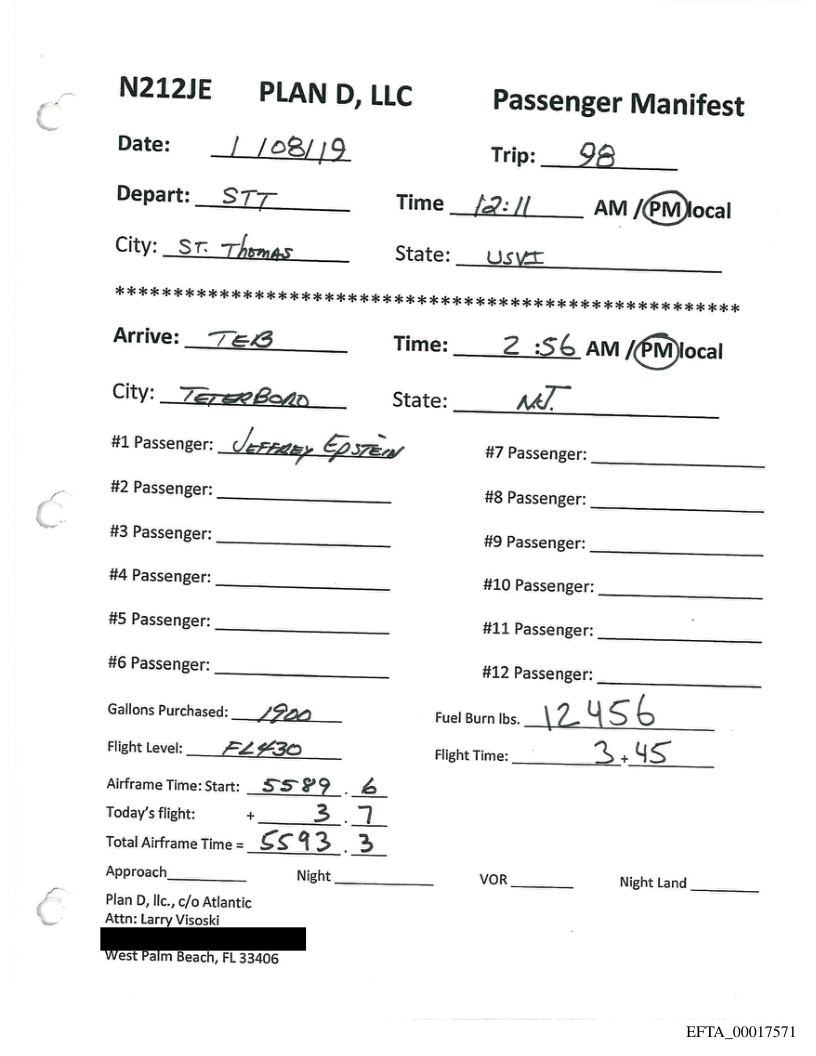 N212JE PLAN D, LLC Passenger Manifest
Date: 1/08/19 Trip: 98
Depart: STT Time 12:11 AM / PM local
City: ST. Thomas State: USVI
******************************************************
Arrive: TEB Time: 2:56 AM / PM local
City: TETERBORO State: NJ.
#1 Passenger: JEFFREY EPSTEIN #7 Passenger:
#2 Passenger: #8 Passenger:
#3 Passenger: #9 Passenger:
#4 Passenger: #10 Passenger:
#5 Passenger: #11 Passenger:
#6 Passenger: #12 Passenger:
Gallons Purchased: 1900 Fuel Burn lbs. 12456
Flight Level: FL430 Flight Time: 3+45
Airframe Time: Start: 5589.6
Today's flight: + 3.7
Total Airframe Time = 5593.3
Approach Night VOR Night Land
Plan D, llc., c/o Atlantic
Attn: Larry Visoski
West Palm Beach, FL 33406
EFTA_00017571